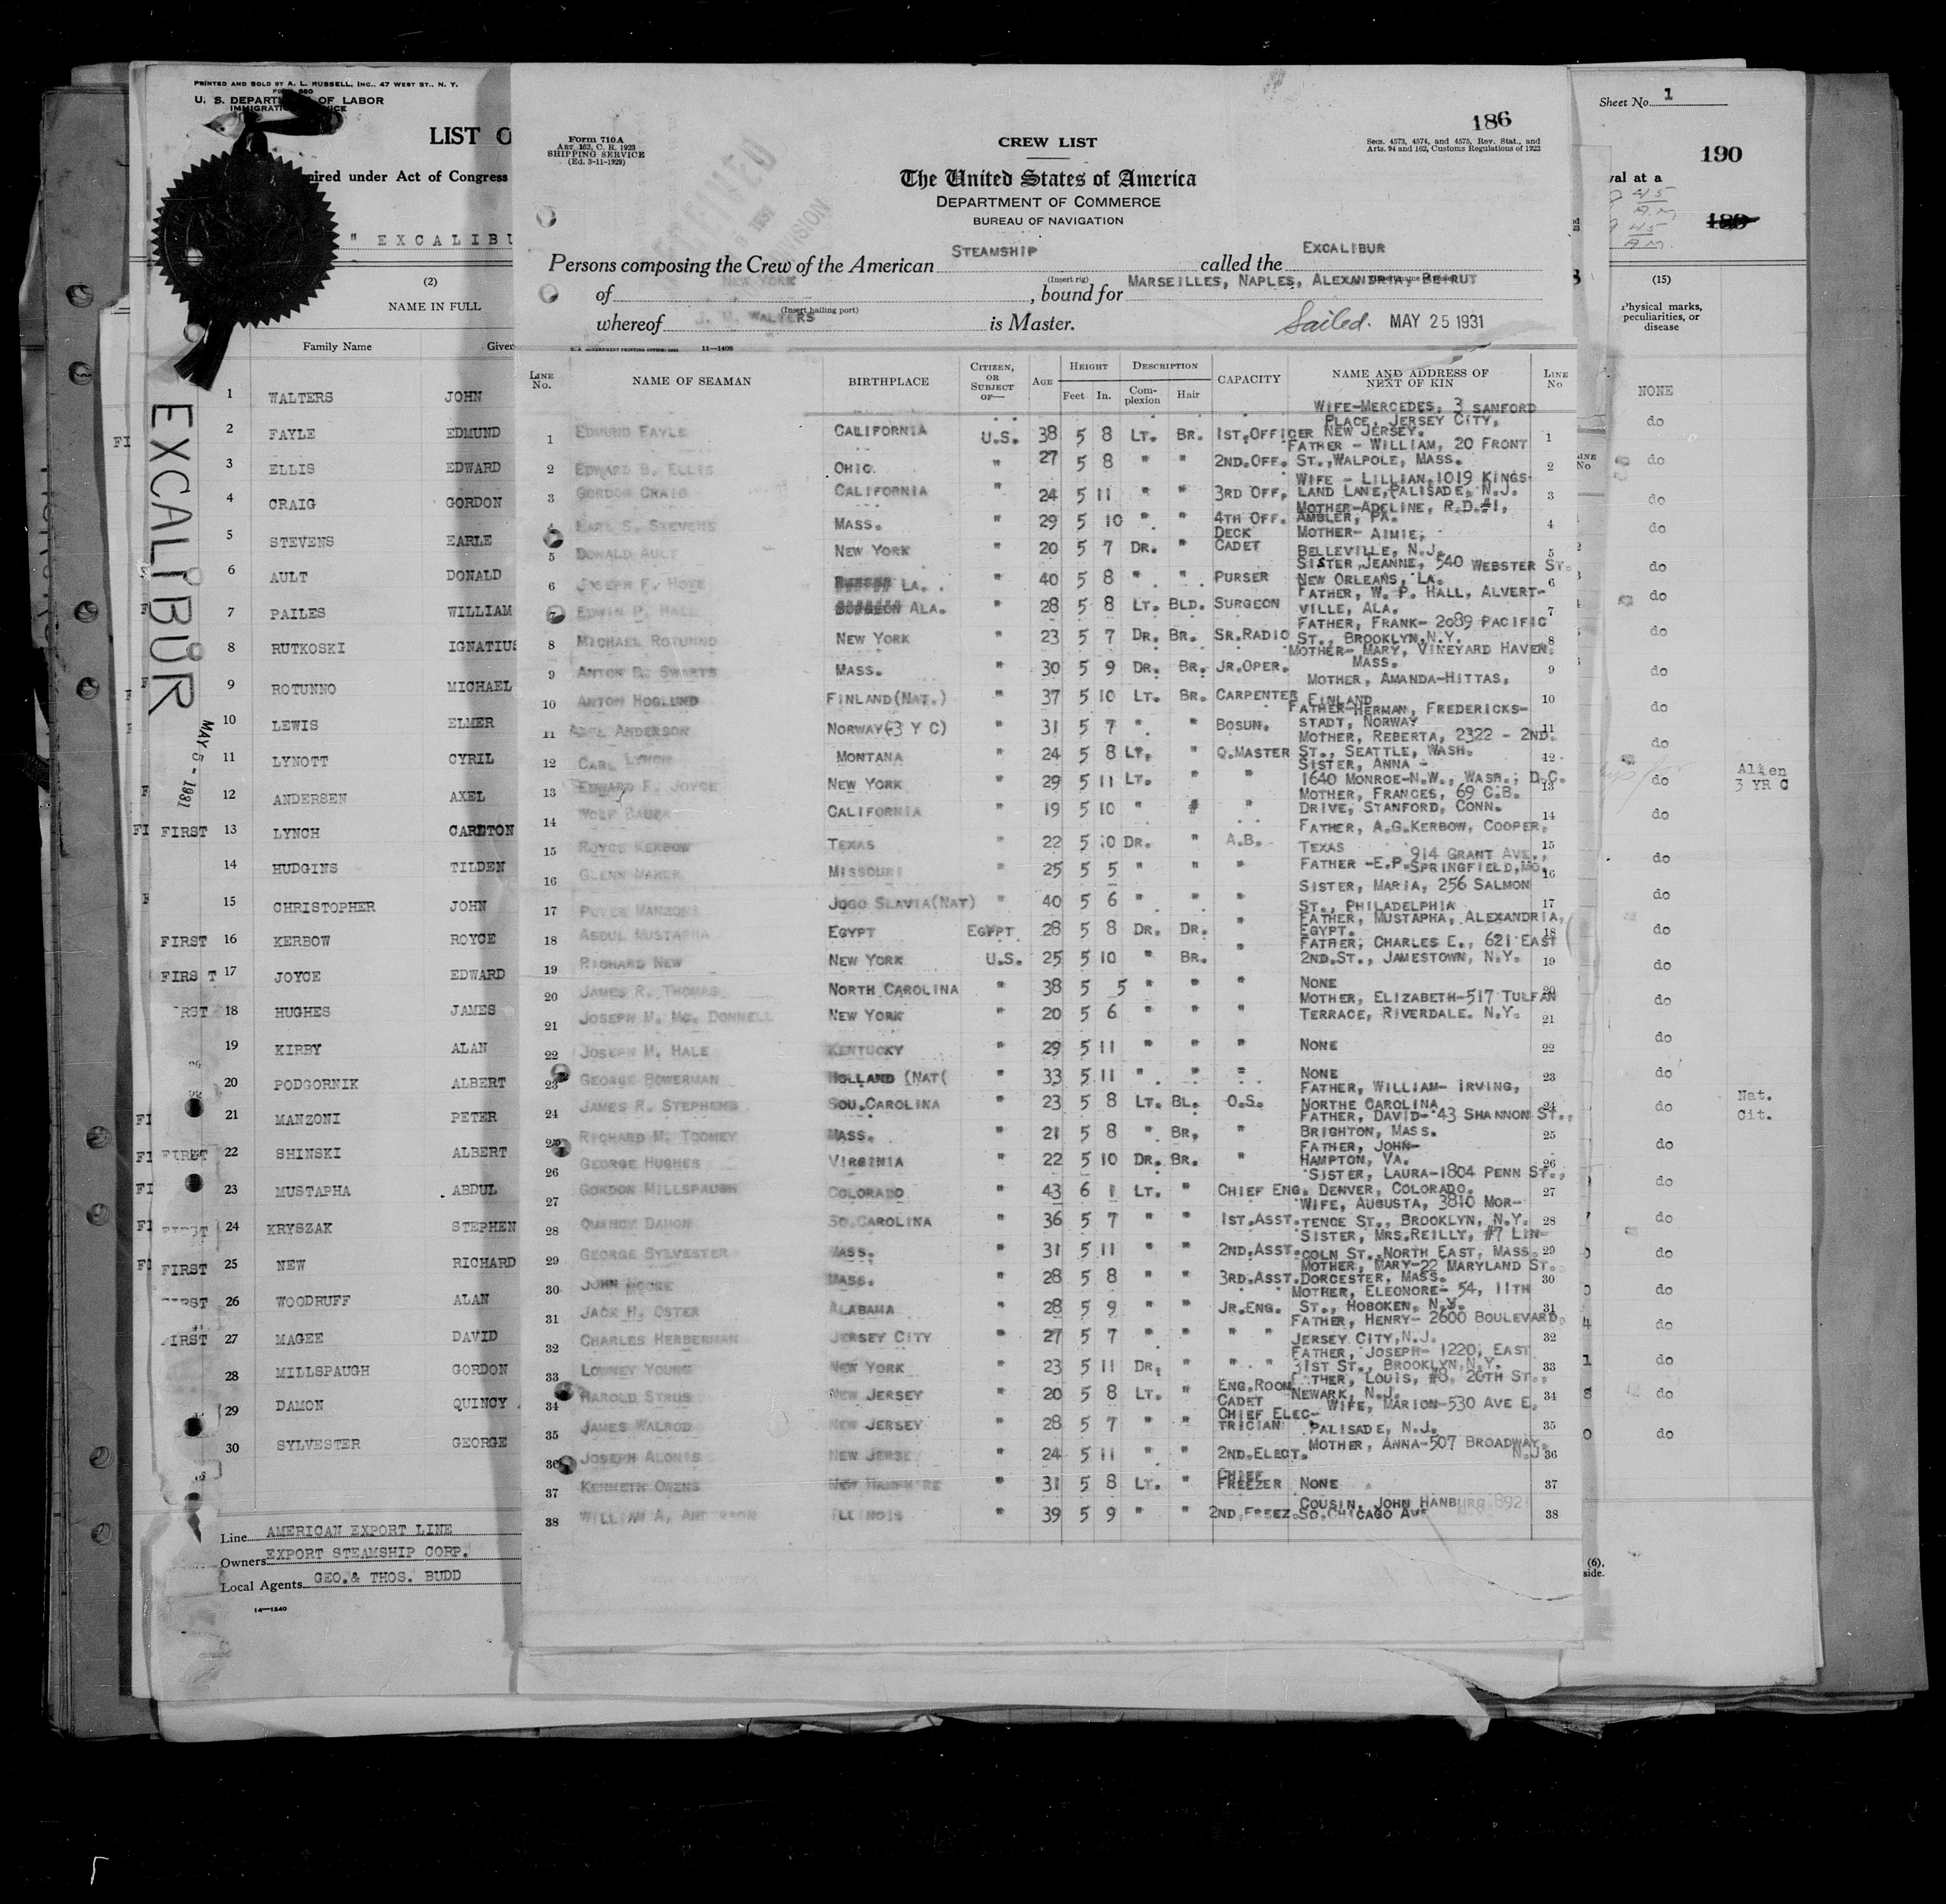 PRINTED AND SOLD BY A. L. RUSSELL, INC., 47 WEST ST., N. Y.
U. S. DEPART OF LABOR
LIST O
uired under Act of Congress
" E X C A L I B U
(2)
NAME IN FULL
Family Name Given
EXCALIBUR
MAY 5 - 1931
1 WALTERS JOHN
2 FAYLE EDMUND
3 ELLIS EDWARD
4 CRAIG GORDON
5 STEVENS EARLE
6 AULT DONALD
7 PAILES WILLIAM
8 RUTKOSKI IGNATIUS
9 ROTUNNO MICHAEL
10 LEWIS ELMER
11 LYNOTT CYRIL
12 ANDERSEN AXEL
FIRST 13 LYNCH CARLTON
14 HUDGINS TILDEN
15 CHRISTOPHER JOHN
FIRST 16 KERBOW ROYCE
FIRS T 17 JOYCE EDWARD
RST 18 HUGHES JAMES
19 KIRBY ALAN
20 PODGORNIK ALBERT
21 MANZONI PETER
FIRST 22 SHINSKI ALBERT
23 MUSTAPHA ABDUL
FIRST 24 KRYSZAK STEPHEN
FIRST 25 NEW RICHARD
FIRST 26 WOODRUFF ALAN
FIRST 27 MAGEE DAVID
28 MILLSPAUGH GORDON
29 DAMON QUINCY
30 SYLVESTER GEORGE
Line AMERICAN EXPORT LINE
Owners EXPORT STEAMSHIP CORP.
Local Agents GEO.& THOS. BUDD
14—1240
Form 710A
ART. 162, C. R. 1923
SHIPPING SERVICE
(Ed. 3-11-1929)
186
Secs. 4573, 4574, and 4575, Rev. Stat., and
Arts. 94 and 162, Customs Regulations of 1923
CREW LIST
The United States of America
DEPARTMENT OF COMMERCE
BUREAU OF NAVIGATION
RECEIVED
Persons composing the Crew of the American STEAMSHIP called the EXCALIBUR
(Insert rig)
of NEW YORK, bound for MARSEILLES, NAPLES, ALEXANDRIA, BEIRUT
(Insert hailing port)
whereof J. M. WALTERS is Master. Sailed. MAY 25 1931
11—1408
LINE No. NAME OF SEAMAN BIRTHPLACE CITIZEN, OR SUBJECT OF— AGE HEIGHT Feet In. DESCRIPTION Complexion Hair CAPACITY NAME AND ADDRESS OF NEXT OF KIN LINE No
WIFE-MERCEDES, 3 SANFORD
PLACE, JERSEY CITY,
1 EDMUND FAYLE CALIFORNIA U.S. 38 5 8 LT. BR. 1ST.OFFICER NEW JERSEY. 1
FATHER - WILLIAM, 20 FRONT
2 EDWARD B. ELLIS OHIO. " 27 5 8 " " 2ND.OFF. ST.,WALPOLE, MASS. 2
WIFE - LILLIAN,1019 KINGS-
3 GORDON CRAIG CALIFORNIA " 24 5 11 " " 3RD OFF, LAND LANE,PALISADE, N.J. 3
MOTHER-ADELINE, R.D.#1,
4 EARL S. STEVENS MASS. " 29 5 10 " " 4TH OFF. AMBLER, PA. 4
5 DONALD AULT NEW YORK " 20 5 7 DR. " DECK CADET MOTHER- AIMIE, BELLEVILLE, N.J. 5
SISTER,JEANNE, 540 WEBSTER ST.
6 JOSEPH F. HOYE LA. " 40 5 8 " " PURSER NEW ORLEANS, LA. 6
FATHER, W. P. HALL, ALVERT-
7 EDWIN P. HALL ALA. " 28 5 8 LT. BLD. SURGEON VILLE, ALA. 7
FATHER, FRANK- 2089 PACIFIC
8 MICHAEL ROTUNNO NEW YORK " 23 5 7 DR. BR. SR.RADIO ST., BROOKLYN,N.Y. 8
MOTHER- MARY, VINEYARD HAVEN.
9 ANTON B. SWARTS MASS. " 30 5 9 DR. BR. JR.OPER. MASS. 9
MOTHER, AMANDA-HITTAS,
10 ANTON HOGLUND FINLAND(NAT.) " 37 5 10 LT. BR. CARPENTER FINLAND 10
FATHER-HERMAN, FREDERICKS-
11 AXEL ANDERSON NORWAY(3 Y C) " 31 5 7 " " BOSUN. STADT, NORWAY 11
MOTHER, REBERTA, 2322 - 2ND.
12 CARL LYNCH MONTANA " 24 5 8 LT. " Q.MASTER ST., SEATTLE, WASH. 12
SISTER, ANNA -
13 EDWARD F. JOYCE NEW YORK " 29 5 11 LT. " " 1640 MONROE-N.W., WASH.; D.C. 13
MOTHER, FRANCES, 69 C.B.
14 WOLF BAUER CALIFORNIA " 19 5 10 " # " DRIVE, STANFORD, CONN. 14
FATHER, A.G.KERBOW, COOPER,
15 ROYCE KERBOW TEXAS " 22 5 10 DR. " A.B. TEXAS 15
914 GRANT AVE.,
16 GLENN MAHER MISSOURI " 25 5 5 " " " FATHER -E.P.SPRINGFIELD,MO. 16
SISTER, MARIA, 256 SALMON
17 PETER MANZONI JOGO SLAVIA(NAT) " 40 5 6 " " " ST., PHILADELPHIA 17
FATHER, MUSTAPHA, ALEXANDRIA,
18 ABDUL MUSTAPHA EGYPT EGYPT 28 5 8 DR. DR. " EGYPT. 18
FATHER, CHARLES E., 621 EAST
19 RICHARD NEW NEW YORK U.S. 25 5 10 " BR. " 2ND.ST., JAMESTOWN, N.Y. 19
20 JAMES R. THOMAS NORTH CAROLINA " 38 5 5 " " " NONE 20
MOTHER, ELIZABETH-517 TULFAN
21 JOSEPH M. MC. DONNELL NEW YORK " 20 5 6 " " " TERRACE, RIVERDALE. N.Y. 21
22 JOSEPH M. HALE KENTUCKY " 29 5 11 " " " NONE 22
23 GEORGE BOWERMAN HOLLAND (NAT( " 33 5 11 " " " NONE 23
FATHER, WILLIAM- IRVING,
24 JAMES R. STEPHENS SOU.CAROLINA " 23 5 8 LT. BL. O.S. NORTHE CAROLINA 24
FATHER, DAVID- 43 SHANNON ST.,
25 RICHARD M. TOOMEY MASS. " 21 5 8 " BR, " BRIGHTON, MASS. 25
FATHER, JOHN-
26 GEORGE HUGHES VIRGINIA " 22 5 10 DR. BR. " HAMPTON, VA. 26
SISTER, LAURA-1804 PENN ST.,
27 GORDON MILLSPAUGH COLORADO " 43 6 1 LT. " CHIEF ENG. DENVER, COLORADO. 27
WIFE, AUGUSTA, 3810 MOR-
28 QUINCY DAMON SO.CAROLINA " 36 5 7 " " 1ST.ASST. TENCE ST., BROOKLYN, N.Y. 28
SISTER, MRS.REILLY, #7 LIN-
29 GEORGE SYLVESTER MASS. " 31 5 11 " " 2ND.ASST. COLN ST.,NORTH EAST, MASS. 29
MOTHER, MARY-22 MARYLAND ST.
30 JOHN MOORE MASS. " 28 5 8 " " 3RD.ASST. DORCESTER, MASS. 30
MOTHER, ELEONORE- 54, 11TH
31 JACK H. OSTER ALABAMA " 28 5 9 " " JR.ENG. ST., HOBOKEN, N.Y. 31
FATHER, HENRY- 2600 BOULEVARD,
32 CHARLES HERBERMAN JERSEY CITY " 27 5 7 " " " " JERSEY CITY,N.J. 32
FATHER, JOSEPH- 1220, EAST
33 LOWNEY YOUNG NEW YORK " 23 5 11 DR, " " " 31ST ST., BROOKLYN,N.Y. 33
THER, LOUIS, #8, 20TH ST.,
34 HAROLD STRUS NEW JERSEY " 20 5 8 LT. " ENG.ROOM CADET NEWARK, N.J. 34
WIFE, MARION-530 AVE E.
35 JAMES WALROD NEW JERSEY " 28 5 7 " " CHIEF ELEC-TRICIAN PALISADE, N.J. 35
MOTHER, ANNA-507 BROADWAY.
36 JOSEPH ALONIS NEW JERSE " 24 5 11 " " 2ND.ELECT. N.J 36
37 KENNETH OWENS NEW HAMPSHIRE " 31 5 8 LT. " CHIEF FREEZER NONE 37
COUSIN, JOHN HANBURG 892
38 WILLIAM A. ANDERSON ILLINOIS " 39 5 9 " " 2ND.FREEZ. SO.CHICAGO AVE 38
Sheet No. 1
190
val at a
45
A.M.
45
A.M.
(15)
Physical marks,
peculiarities, or
disease
NONE
do
do
do
do
do
do
do
do
do
do
do Alien
3 YR C
do
do
do
do
do
do
do
do
do
do Nat.
Cit.
do
do
do
do
do
do
do
do
(6),
side.